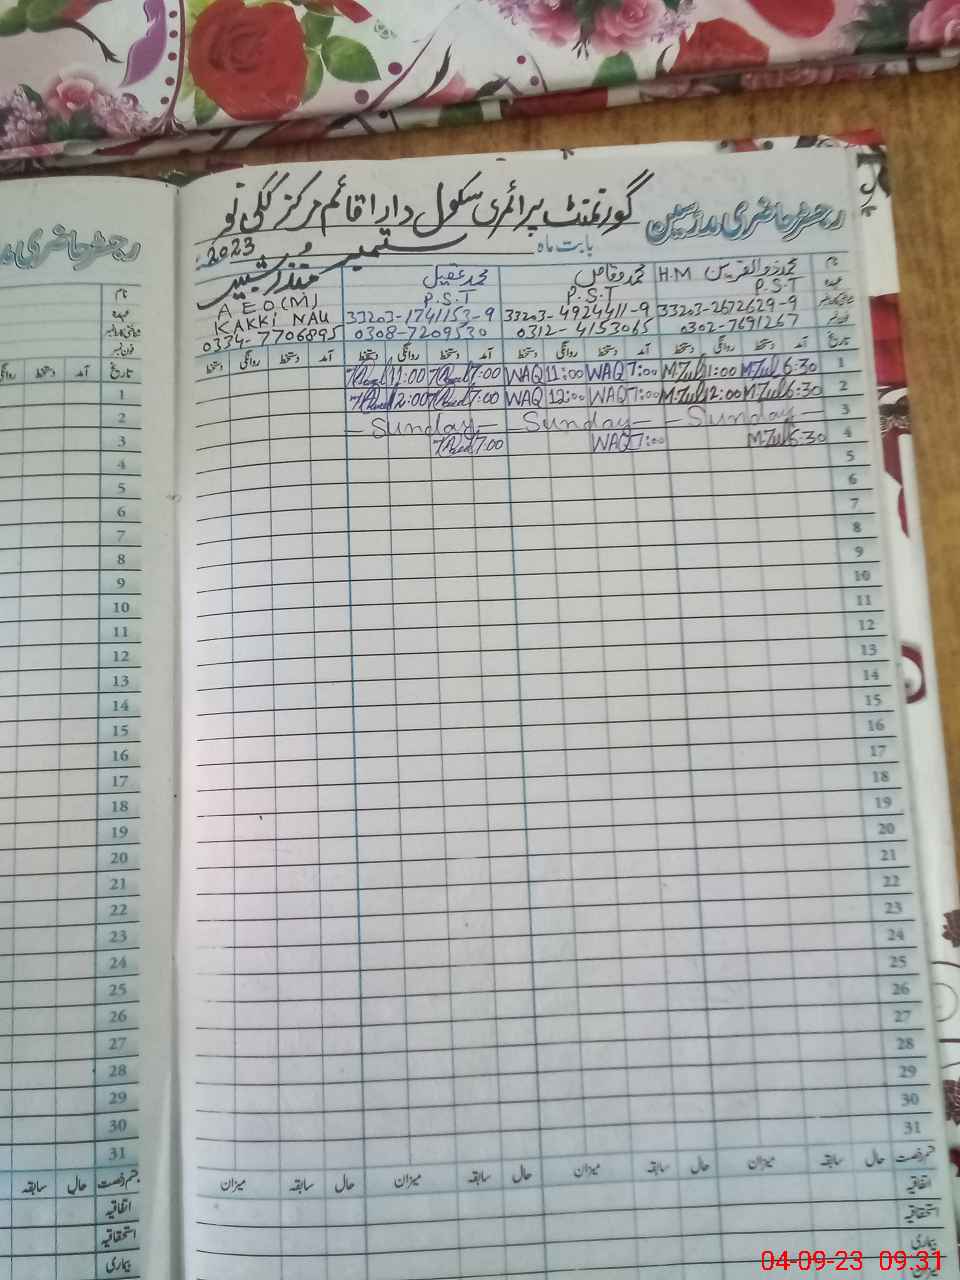 رجسٹر حاضری مدرسین گورنمنٹ پرائمری سکول دارا قائم مرکز ککی نو
بابت ماہ ستمبر 2023
نام محمد ذوالقرنین H.M محمد وقاص محمد عقیل
عہدہ P.S.T P.S.T P.S.T A E O (M)
33203-2672629-9 33203-4924411-9 33203-1741153-9 KAKKI NAU
فون نمبر 0302-7691267 0312-4153065 0308-7209530 0334-7706895
تاریخ آمد دستخط روانگی دستخط آمد دستخط روانگی دستخط آمد دستخط روانگی دستخط آمد دستخط روانگی دستخط
1 6:30 M.Zul 11:00 M.Zul 7:00 WAQ 11:00 WAQ 7:00 11:00
2 6:30 M.Zul 12:00 M.Zul 7:00 WAQ 12:00 WAQ 7:00 12:00
3 Sunday Sunday Sunday
4 6:30 M.Zul 7:00 WAQ 7:00
5
6
7
8
9
10
11
12
13
14
15
16
17
18
19
20
21
22
23
24
25
26
27
28
29
30
31
قسم رخصت حال سابقہ میزان حال سابقہ میزان حال سابقہ میزان حال سابقہ میزان
اتفاقیہ
استحقاقیہ
بیماری
میزان
رجسٹر حاضری
نام
عہدہ
فون نمبر
تاریخ آمد دستخط روانگی
1
2
3
4
5
6
7
8
9
10
11
12
13
14
15
16
17
18
19
20
21
22
23
24
25
26
27
28
29
30
31
قسم رخصت حال سابقہ
اتفاقیہ
استحقاقیہ
بیماری
04-09-23 09:31